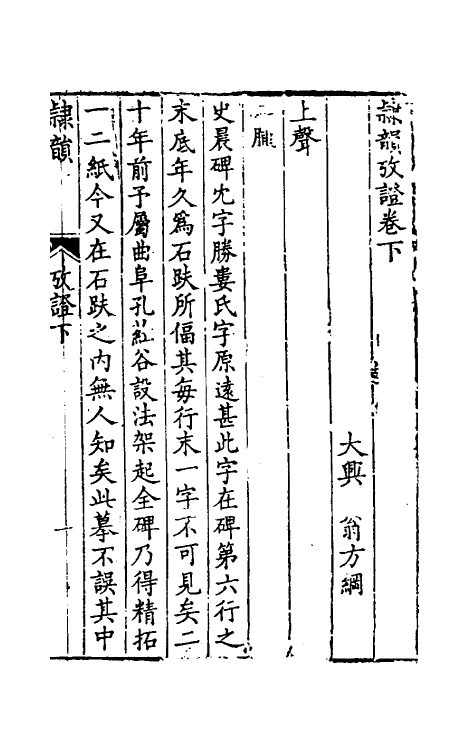 隸韻攷證卷下
大興 翁方綱
上聲
二腫
史晨碑尢字勝婁氏字原遠甚此字在碑第六行之
末底年久爲石趺所偪其每行末一字不可見矣二
十年前予屬曲阜孔葒谷設法架起全碑乃得精拓
一二紙今又在石趺之內無人知矣此摹不誤其中
隸韻 攷證下 一